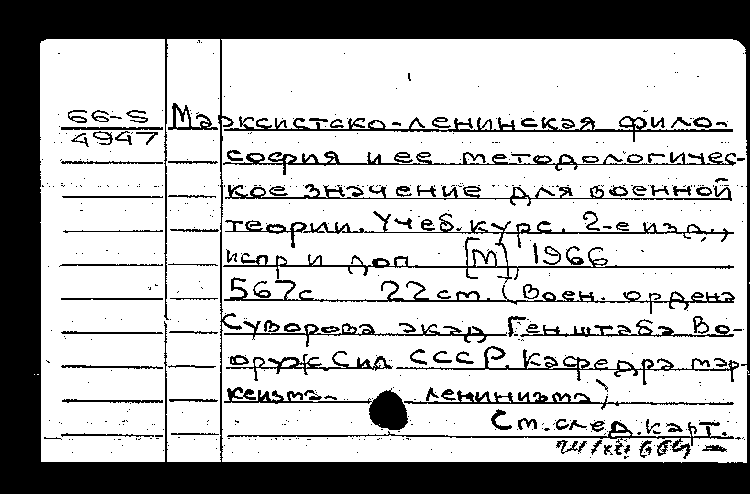 66-5 Марксистско-ленинская фило-
4947
софия и ее методологичес-
кое значение для военной
теории. Учеб. курс. 2-е изд.,
испр и доп [М], 1966
567с 22 см. (Воен. ордена
Суворова акад Ген.штаба Во-
оруж. Сил СССР. Кафедра мар-
ксизма- ленинизма).
См. след. карт.